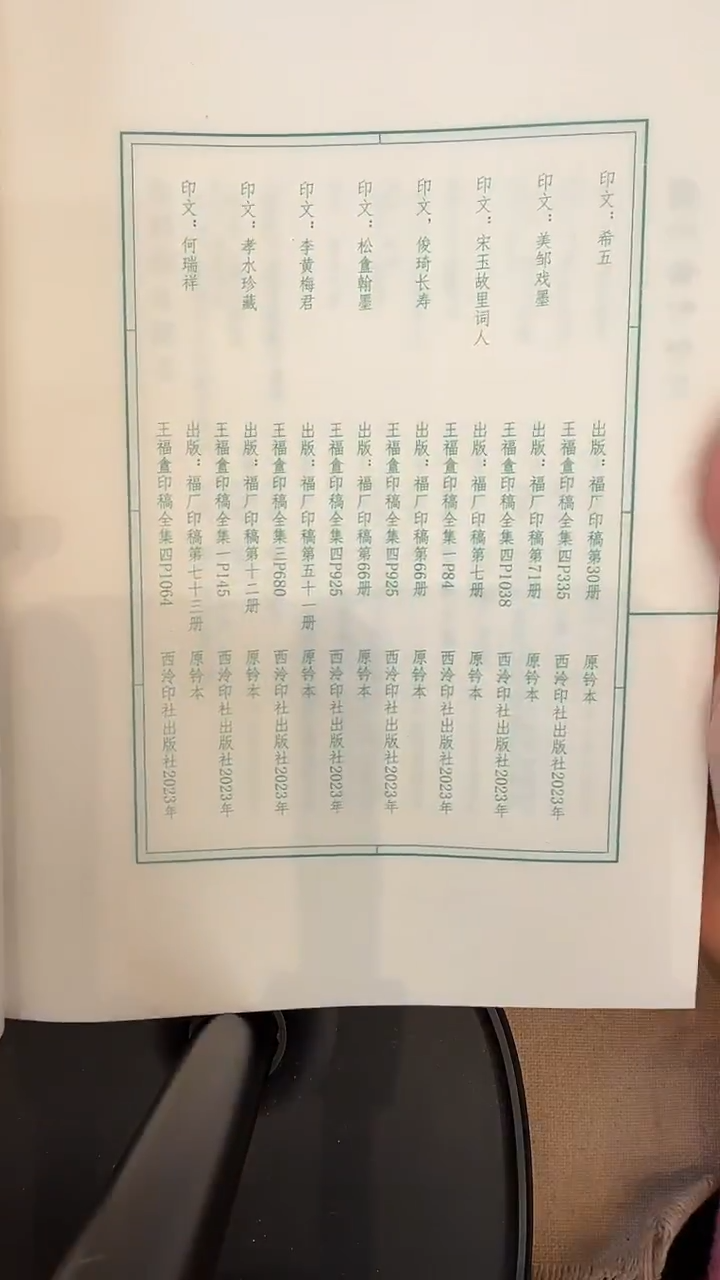 印文：希五
出版：福厂印稿第30册 原钤本
王福盦印稿全集四P335 西泠印社出版社2023年
印文：美邹戏墨
出版：福厂印稿第71册 原钤本
王福盦印稿全集四P1038 西泠印社出版社2023年
印文：宋玉故里词人
出版：福厂印稿第七册 原钤本
王福盦印稿全集一P84 西泠印社出版社2023年
印文，俊琦长寿
出版：福厂印稿第66册 原钤本
王福盦印稿全集四P925 西泠印社出版社2023年
印文：松盦翰墨
出版：福厂印稿第66册 原钤本
王福盦印稿全集四P925 西泠印社出版社2023年
印文：李黄梅君
出版：福厂印稿第五十一册 原钤本
王福盦印稿全集三P680 西泠印社出版社2023年
印文：孝水珍藏
出版：福厂印稿第十二册 原钤本
王福盦印稿全集一P145 西泠印社出版社2023年
印文：何瑞祥
出版：福厂印稿第七十三册 原钤本
王福盦印稿全集四P1064 西泠印社出版社2023年